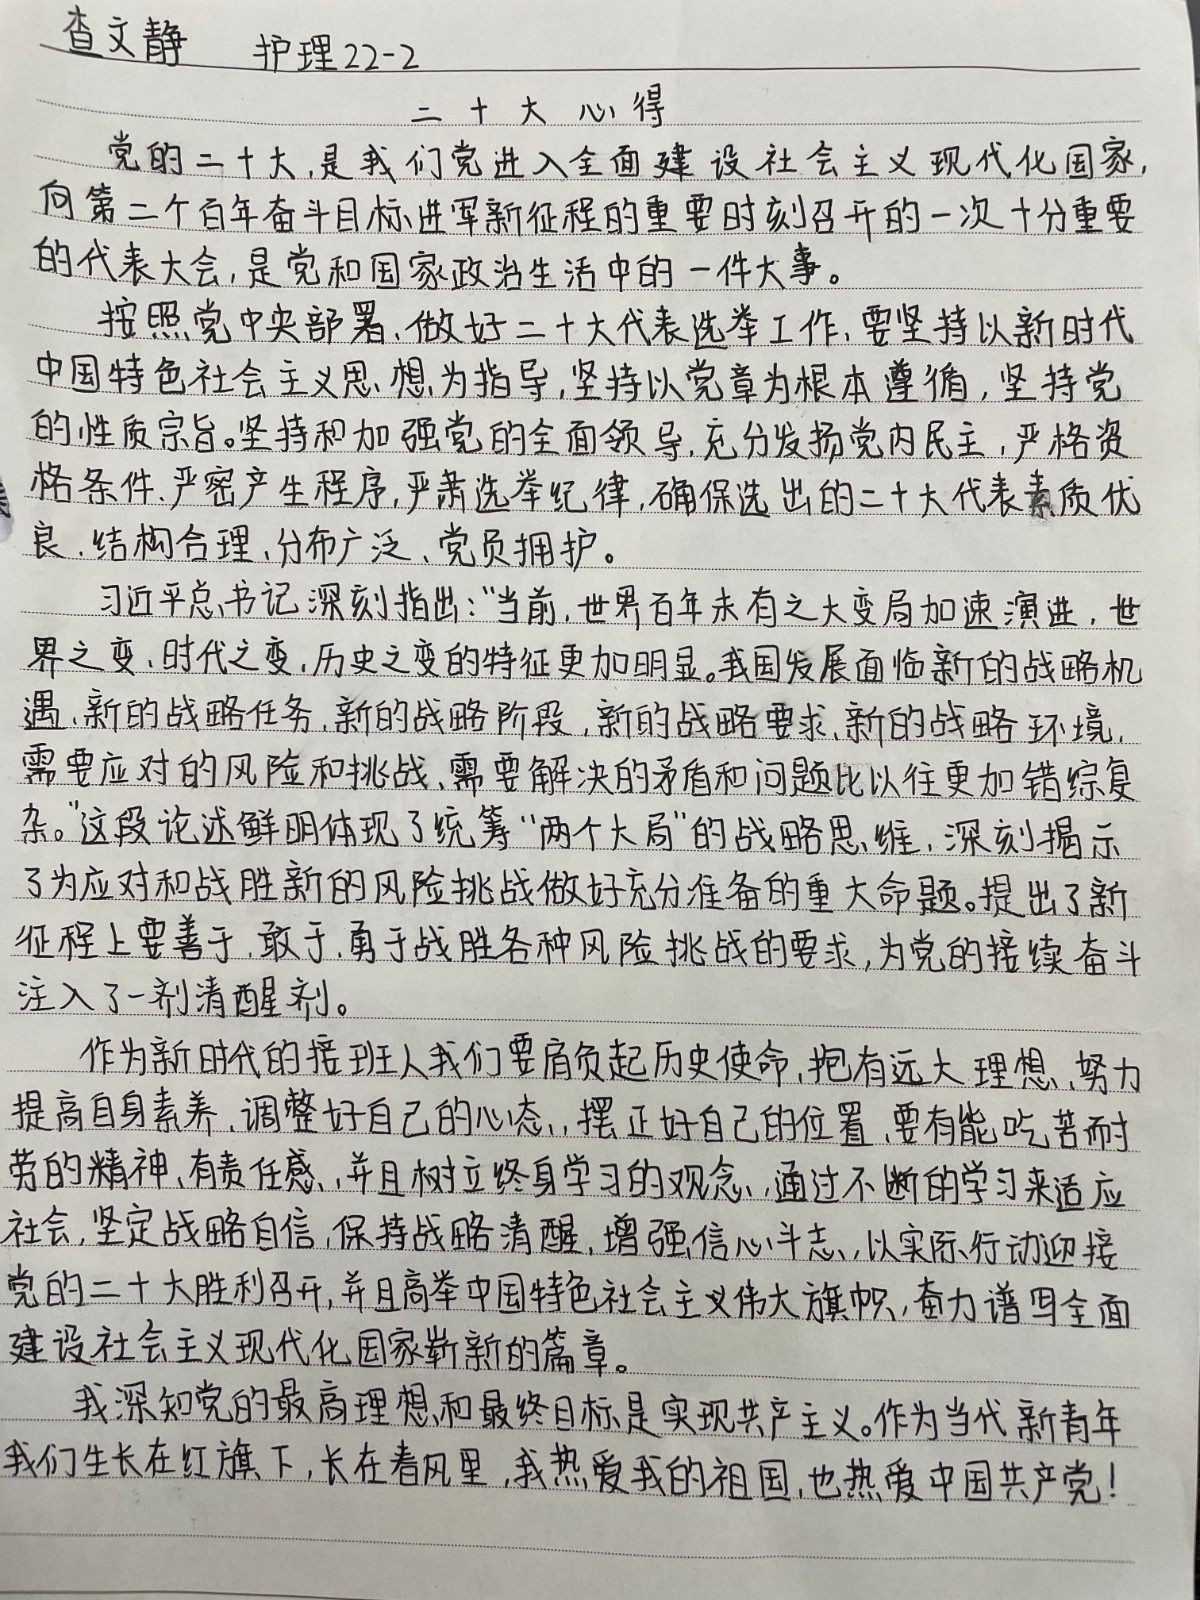 查文静 护理22-2
二十大心得
党的二十大,是我们党进入全面建设社会主义现代化国家,
向第二个百年奋斗目标进军新征程的重要时刻召开的一次十分重要
的代表大会,是党和国家政治生活中的一件大事。
按照党中央部署,做好二十大代表选举工作,要坚持以新时代
中国特色社会主义思想为指导,坚持以党章为根本遵循,坚持党
的性质宗旨。坚持和加强党的全面领导,充分发扬党内民主,严格资
格条件、严密产生程序,严肃选举纪律,确保选出的二十大代表素质优
良、结构合理、分布广泛、党员拥护。
习近平总书记深刻指出:“当前,世界百年未有之大变局加速演进,世
界之变、时代之变、历史之变的特征更加明显。我国发展面临新的战略机
遇、新的战略任务、新的战略阶段、新的战略要求、新的战略环境,
需要应对的风险和挑战、需要解决的矛盾和问题比以往更加错综复
杂。”这段论述鲜明体现了统筹“两个大局”的战略思维,深刻揭示
了为应对和战胜新的风险挑战做好充分准备的重大命题。提出了新
征程上要善于、敢于、勇于战胜各种风险挑战的要求,为党的接续奋斗
注入了一剂清醒剂。
作为新时代的接班人我们要肩负起历史使命,抱有远大理想、努力
提高自身素养、调整好自己的心态,摆正好自己的位置、要有能吃苦耐
劳的精神、有责任感,并且树立终身学习的观念,通过不断的学习来适应
社会,坚定战略自信,保持战略清醒,增强信心斗志,以实际行动迎接
党的二十大胜利召开,并且高举中国特色社会主义伟大旗帜,奋力谱写全面
建设社会主义现代化国家崭新的篇章。
我深知党的最高理想和最终目标是实现共产主义。作为当代新青年
我们生长在红旗下,长在春风里,我热爱我的祖国,也热爱中国共产党!